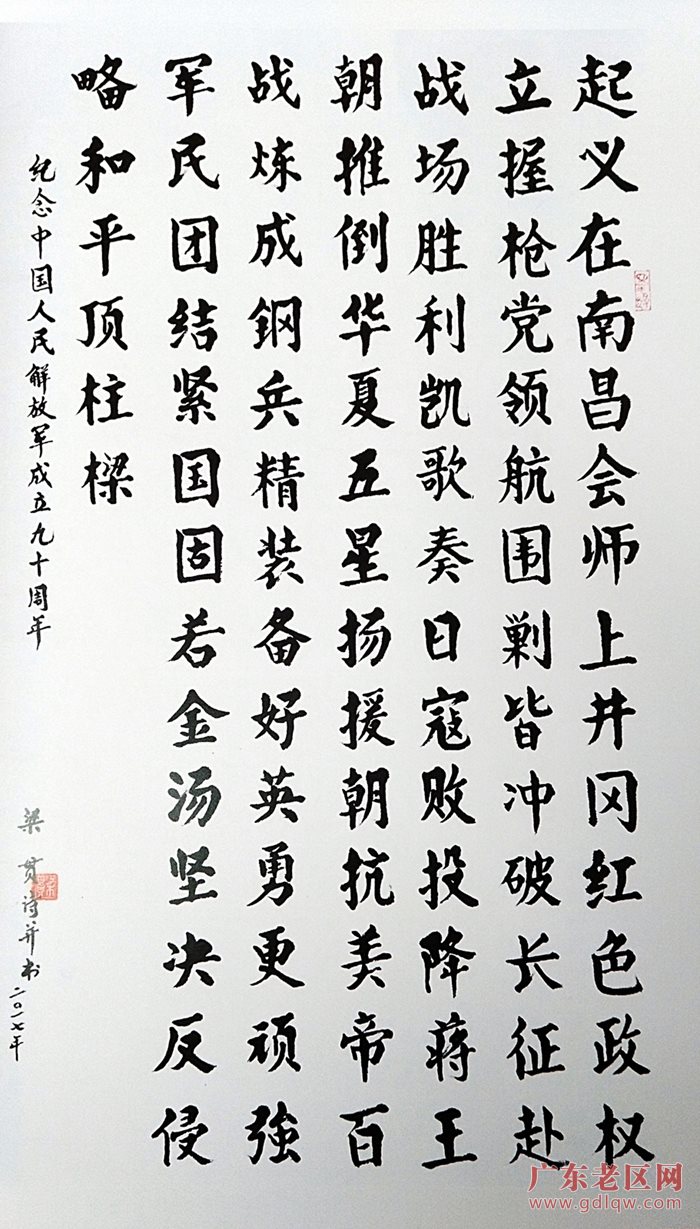 起义在南昌会师上井冈红色政权
立握枪党领航围剿皆冲破长征赴
战场胜利凯歌奏日寇败投降蒋王
朝推倒华夏五星扬援朝抗美帝百
战炼成鋼兵精装备好英勇更顽強
军民团结紧国固若金汤坚决反侵
略和平顶柱樑
纪念中国人民解放军成立九十周年
梁贯诗并书二〇一七年
广东老区网
www.gdlqw.com